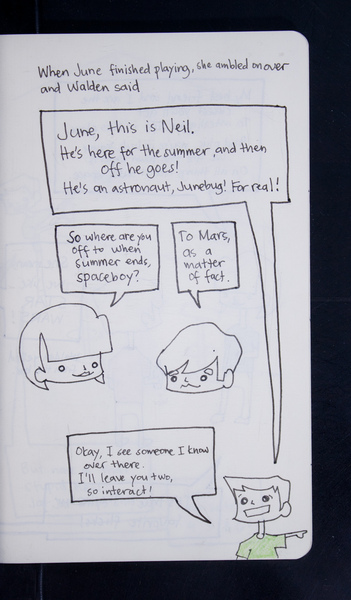 When June finished playing, she ambled on over
and Walden said
June, this is Neil.
He's here for the summer, and then
off he goes!
He's an astronaut, Junebug! For real!
So where are you
off to when
summer ends,
spaceboy?
To Mars,
as a
matter
of fact.
Okay, I see someone I know
over there.
I'll leave you two,
so interact!